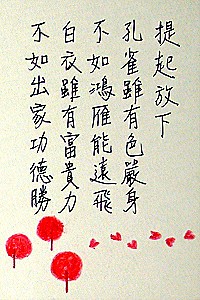 提起放下
孔雀雖有色嚴身
不如鴻雁能遠飛
白衣雖有富貴力
不如出家功德勝